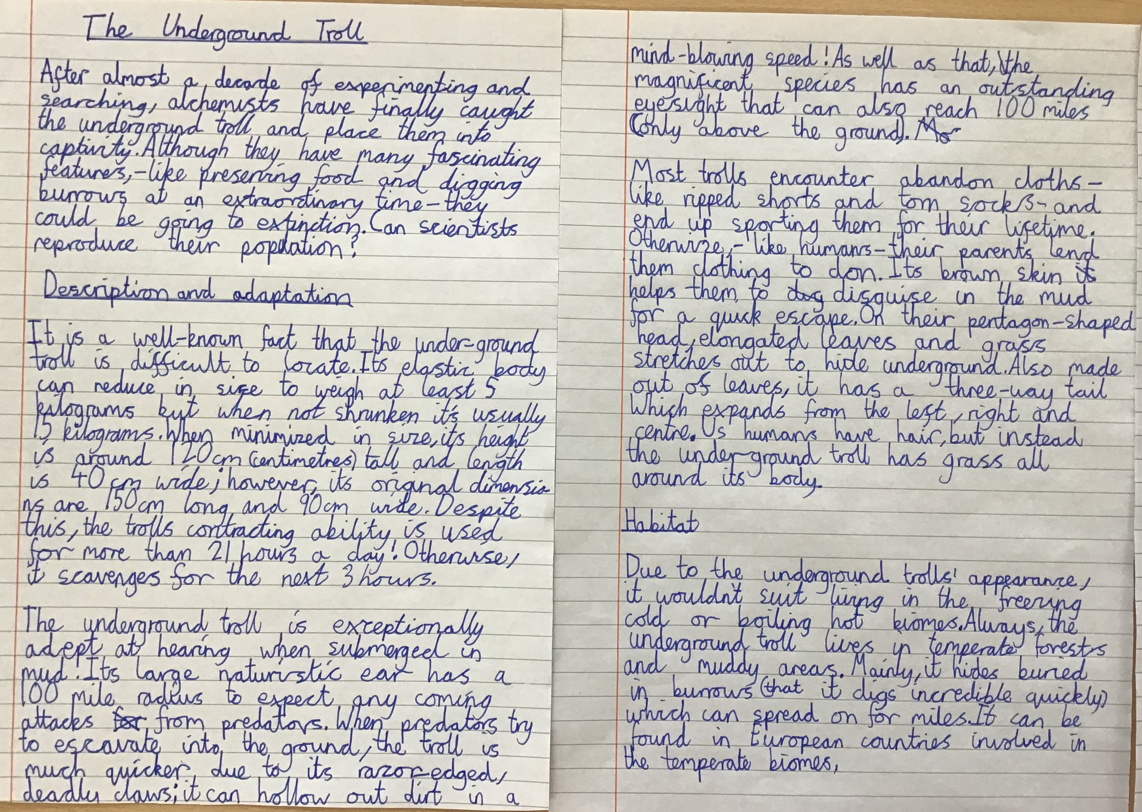 The Underground Troll
After almost a decade of experimenting and
searching, alchemists have finally caught
the underground troll and place them into
captivity. Although they have many fascinating
features,-like preserving food and digging
burrows at an extraordinary time-they
could be going to extinction. Can scientists
reproduce their population?
Description and adaptation
It is a well-known fact that the under-ground
troll is difficult to locate. Its elastic body
can reduce in size to weigh at least 5
kilograms but when not shrunken it's usually
15 kilograms. When minimized in size, it's height
is around 120cm (centimetres) tall and length
is 40cm wide; however, its original dimensio
ns are 150cm long and 90cm wide. Despite
this, the trolls contracting ability is used
for more than 21 hours a day! Otherwise,
it scavenges for the next 3 hours.
The underground troll is exceptionally
adept at hearing when submerged in
mud. Its large naturistic ear has a
100 mile radius to expect any coming
attacks from predators. When predators try
to escavate into the ground, the troll is
much quicker due to its razor-edged,
deadly claws; it can hollow out dirt in a
mind-blowing speed! As well as that, the
magnificent species has an outstanding
eyesight that can also reach 100 miles
(only above the ground).
Most trolls encounter abandon cloths-
like ripped shorts and torn socks-and
end up sporting them for their lifetime.
Otherwize,-like humans-their parents lend
them clothing to don. Its brown skin is
helps them to disguise in the mud
for a quick escape. On their pentagon-shaped
head, elongated leaves and grass
stretches out to hide underground. Also made
out of leaves, it has a three-way tail
which expands from the left, right and
centre. Us humans have hair, but instead
the under-ground troll has grass all
around its body.
Habitat
Due to the underground trolls' appearance,
it wouldn't suit living in the freezing
cold or boiling hot biomes. Always, the
underground troll lives in temperate forestrs
and muddy areas. Mainly, it hides buried
in burrows (that it digs incredible quickly)
which can spread on for miles. It can be
found in European countries involved in
the temperate biomes,